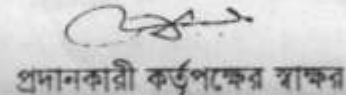 প্রদানকারী কর্তৃপক্ষের স্বাক্ষর